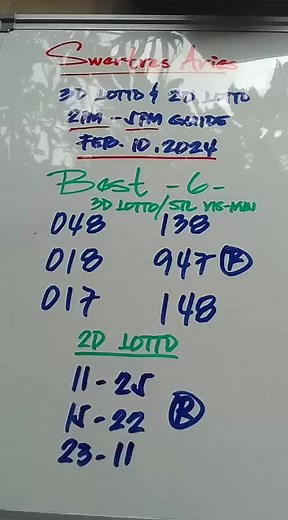 Swertres Aries
3D LOTTO & 2D LOTTO
2PM - 5PM GUIDE
FEB. 10. 2024
Best - 6 -
3D LOTTO/STL VIS-MIN
048 138
018 947 R
017 148
2D LOTTO
11-25
15-22 R
23-11